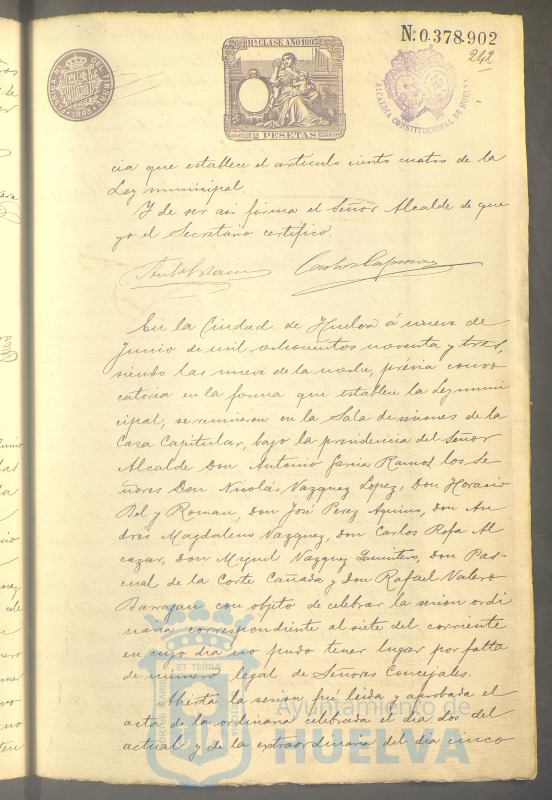 Nº 0.378.902
242
11ª CLASE AÑO 1893
2 PESETAS
ALCALDÍA CONSTITUCIONAL DE HUELVA
cia que establece el artículo ciento cuatro de la
Ley municipal.
Y de ser asi firma el Señor Alcalde de que
yo el Secretario certifico.
En la Ciudad de Huelva á nueve de
Junio de mil ochocientos noventa y tres,
siendo las nueve de la noche, prévia convo
catoria en la forma que establece la Ley muni
cipal, se reunieron en la Sala de sesiones de la
Casa Capitular, bajo la presidencia del Señor
Alcalde Don Antonio Garcia Ramos los Se
ñores Don Nicolás Vazquez Lopez, Don Horacio
Bel y Roman, Don José Perez Aquino, Don An
drés Magdaleno Vazquez, Don Carlos Rofa Al
cazar, Don Miguel Vazquez Don Pas-
cual de la Corte Cañada y Don Rafael Valero
Barragan con objeto de celebrar la sesion ordi
naria correspondiente al siete del corriente
en cuyo dia no pudo tener lugar por falta
de número legal de Señores Concejales.
Abierta la sesion fué leida y aprobada el
acta de la ordinaria celebrada el dia dos del
actual y de la extraordinaria del dia cinco
Ayuntamiento de
HUELVA